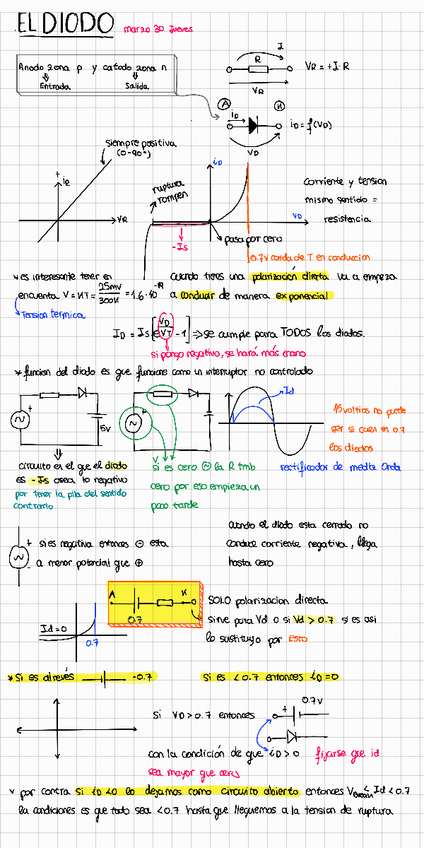 EL DIODO marzo 30 Jueves
Anodo zona p y catodo zona n
Entrada Salida
I
R
VR
VR = +I·R
A K
iD
VD
iD = f(VD)
siempre positiva
(0-90°)
iR
VR
ruptura
rompen
iD
VD
-Is
pasa por cero
0.7V caida de T en conduccion
Corriente y tension
mismo sentido =
resistencia
es interesante tener en
encuenta V = KT = 25mV / 300K = 1.6·10
Tension termica
Cuando tienes una polarización directa va a empezar
a conducir de manera exponencial
ID = Is [e VD/VT - 1] => se cumple para TODOS los diodos.
si pongo negativo, se hará más enano
* funcion del diodo es que funcione como un interruptor no controlado
5V
Id
15 voltios no puede
ser si caen en 0.7
los diodos
circuito en el que el diodo
es -Is osea lo negativo
por tener la pila del sentido
contrario
si es cero la R tmb
cero por eso empieza un
poco tarde
rectificador de media Onda
si es negativa entonces ⊖ esta
a menor potencial que ⊕
cuando el diodo esta cerrado no
conduce corriente negativa, llega
hasta cero
Id=0
0.7
A K
0.7
SOLO polarizacion directa
sirve para Vd 0 si Vd > 0.7 si es asi
lo sustituyo por ESTO
* Si es al revés -0.7
si es <0.7 entonces iD=0
Si VD > 0.7 entonces
0.7V
con la condición de que iD > 0 fijarse que id
sea mayor que cero
por contra si iD<0 lo dejamos como circuito abierto entonces V < Id < 0.7
la condiciones es que todo sea <0.7 hasta que lleguemos a la tension de ruptura.